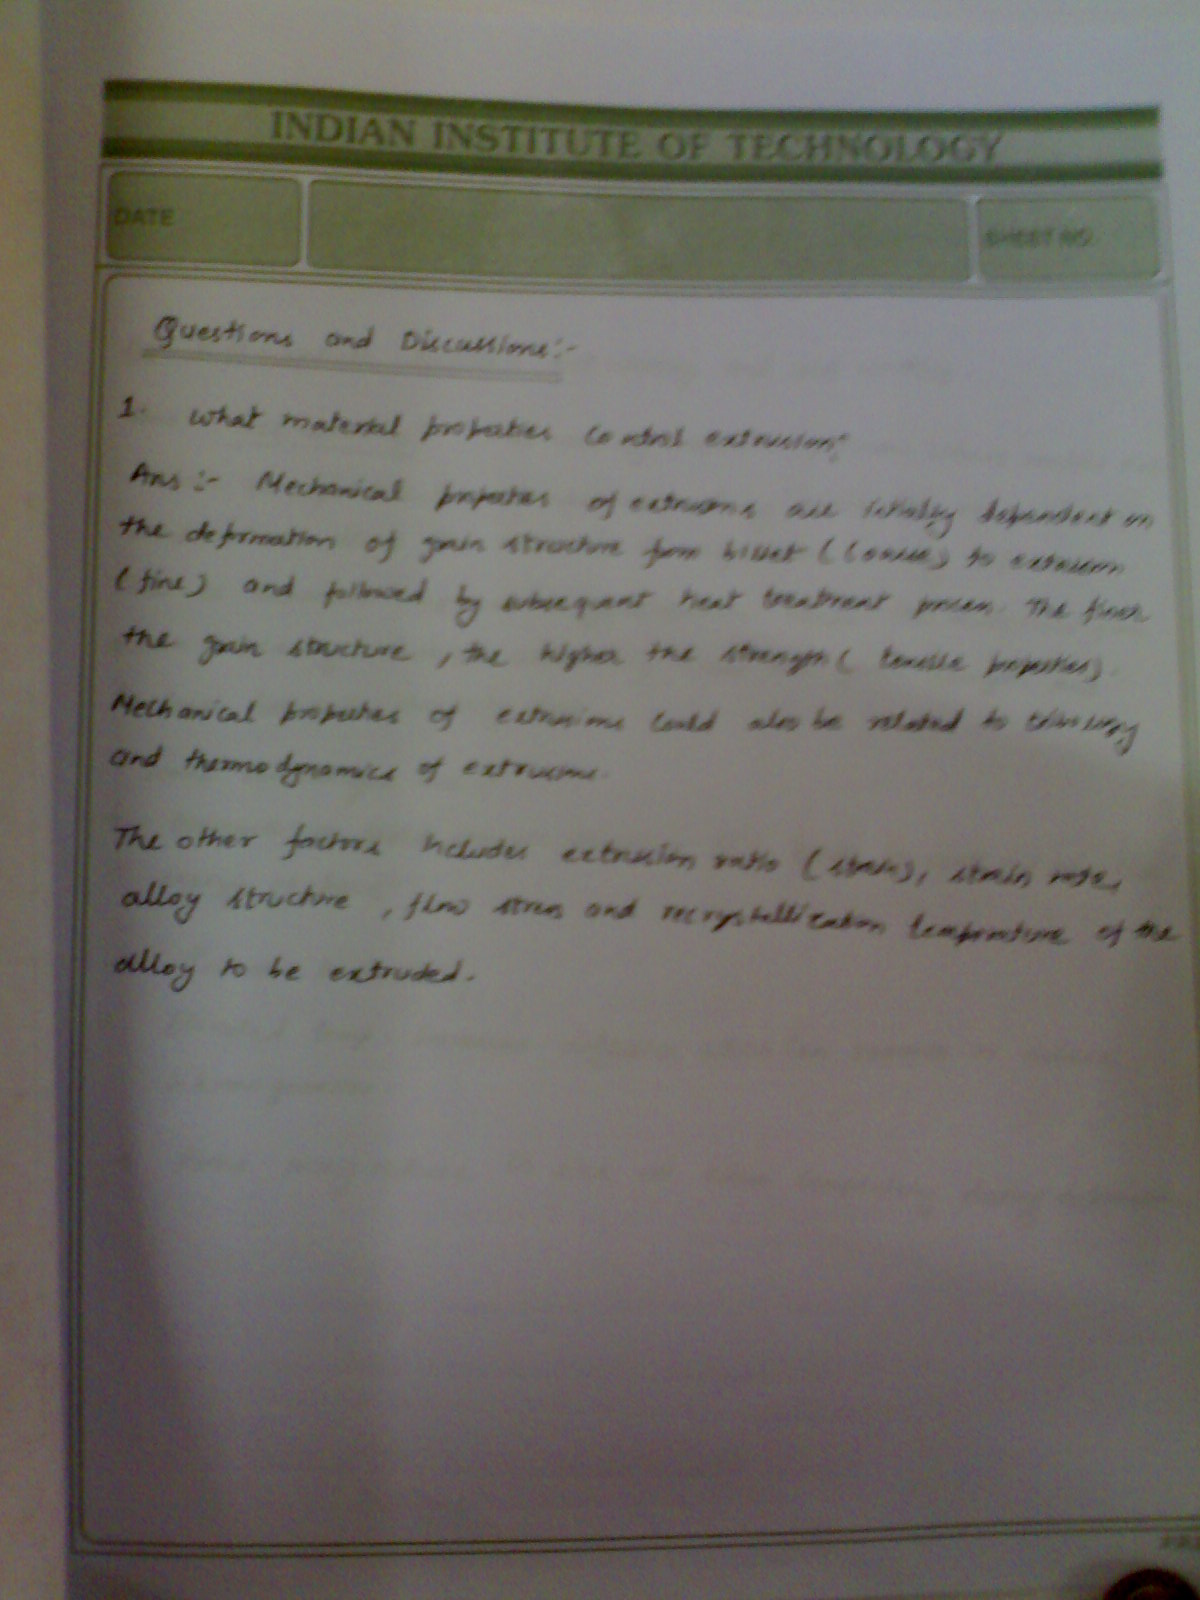 INDIAN INSTITUTE OF TECHNOLOGY
DATE
SHEET NO.
Questions and Discussions:-
1. What material properties control extrusion?
Ans :- Mechanical properties of extrusions are initially dependent on
the deformation of grain structure from billet (coarse) to extrusion
(fine) and followed by subsequent heat treatment process. The finer
the grain structure, the higher the strength (tensile properties).
Mechanical properties of extrusions could also be related to tribology
and thermodynamics of extrusions.
The other factors includes extrusion ratio (strain), strain rate,
alloy structure, flow stress and recrystallization temperature of the
alloy to be extruded.